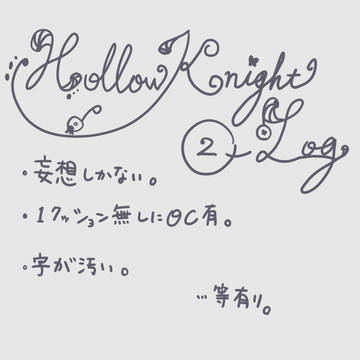 Hollow Knight
2 Log
・妄想しかない。
・1クッション無しにOC有。
・字が汚い。
…等有り。